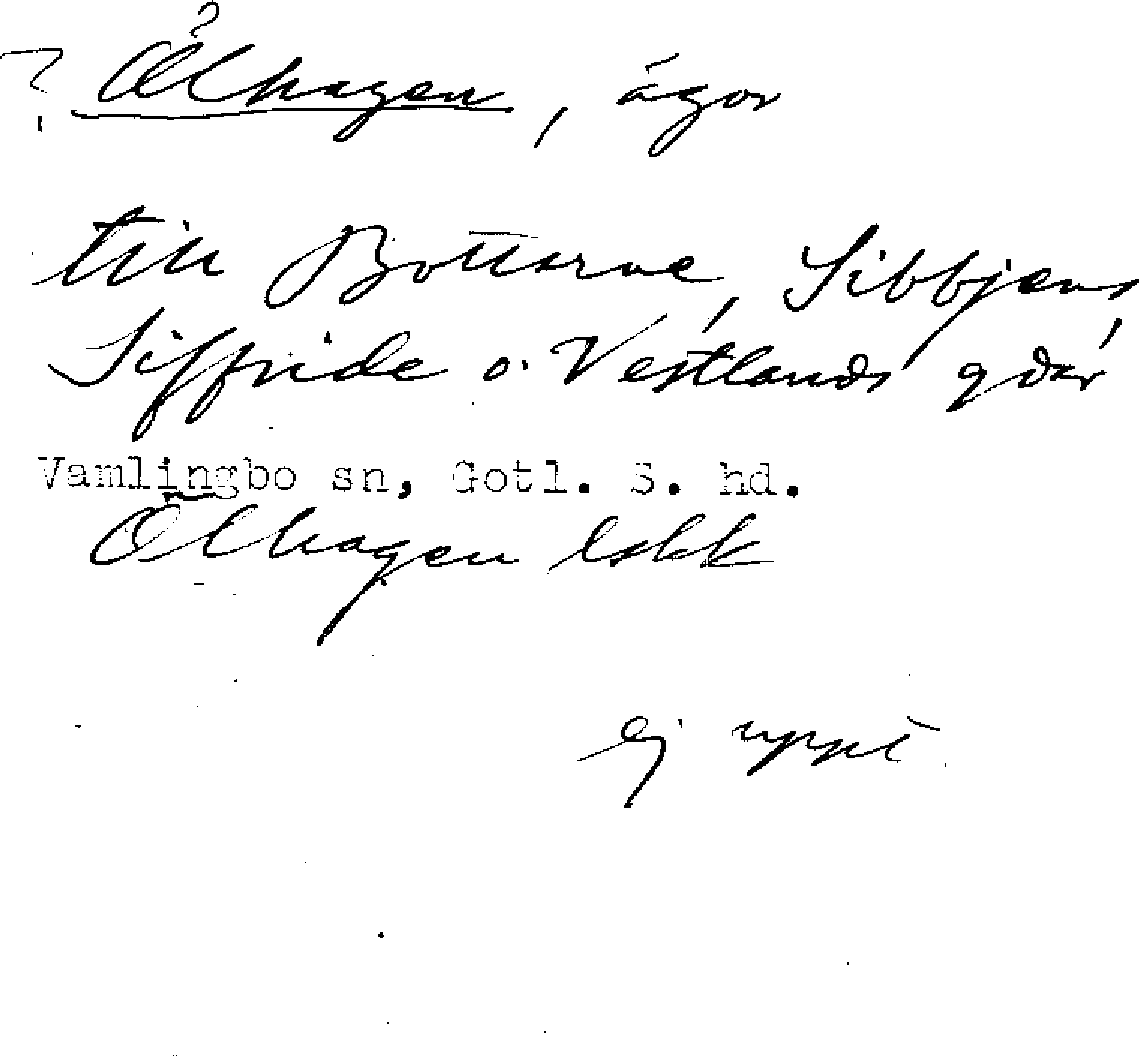 ? Ölhagen, ägor
till Bottarve, Sibbjens,
Siffride o. Vestlands gdar
Vamlingbo sn, Gotl. S. hd.
Ölhagen
ej uppt